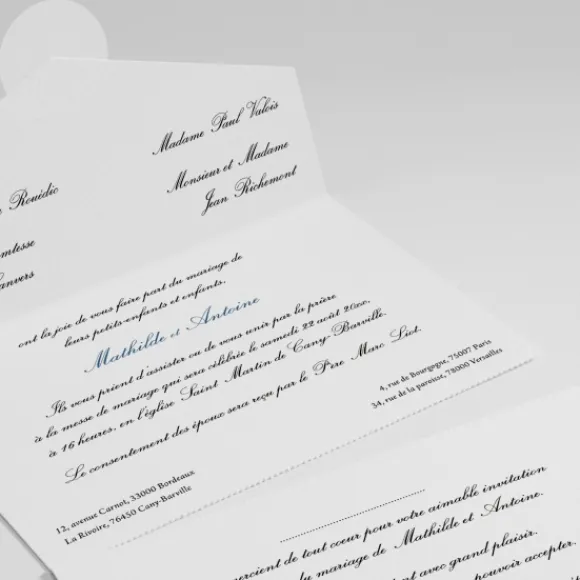 Madame Paul Valois
Monsieur et Madame
Jean Richemont
Rouëdic
ont la joie de vous faire part du mariage de
leurs petits-enfants et enfants,
Mathilde et Antoine
Ils vous prient d'assister ou de vous unir par la prière
à la messe de mariage qui sera célébrée le samedi 22 août 20xx,
à 16 heures, en l'église Saint Martin de Cany-Barville.
Le consentement des époux sera reçu par le Père Marc Liot.
4, rue de Bourgogne, 75007 Paris
34, rue de la paroisse, 78000 Versailles
12, avenue Carnot, 33000 Bordeaux
La Rivoire, 76450 Cany-Barville
de tout coeur pour votre aimable invitation
du mariage de Mathilde et Antoine.
avec grand plaisir.
pouvoir accepter.